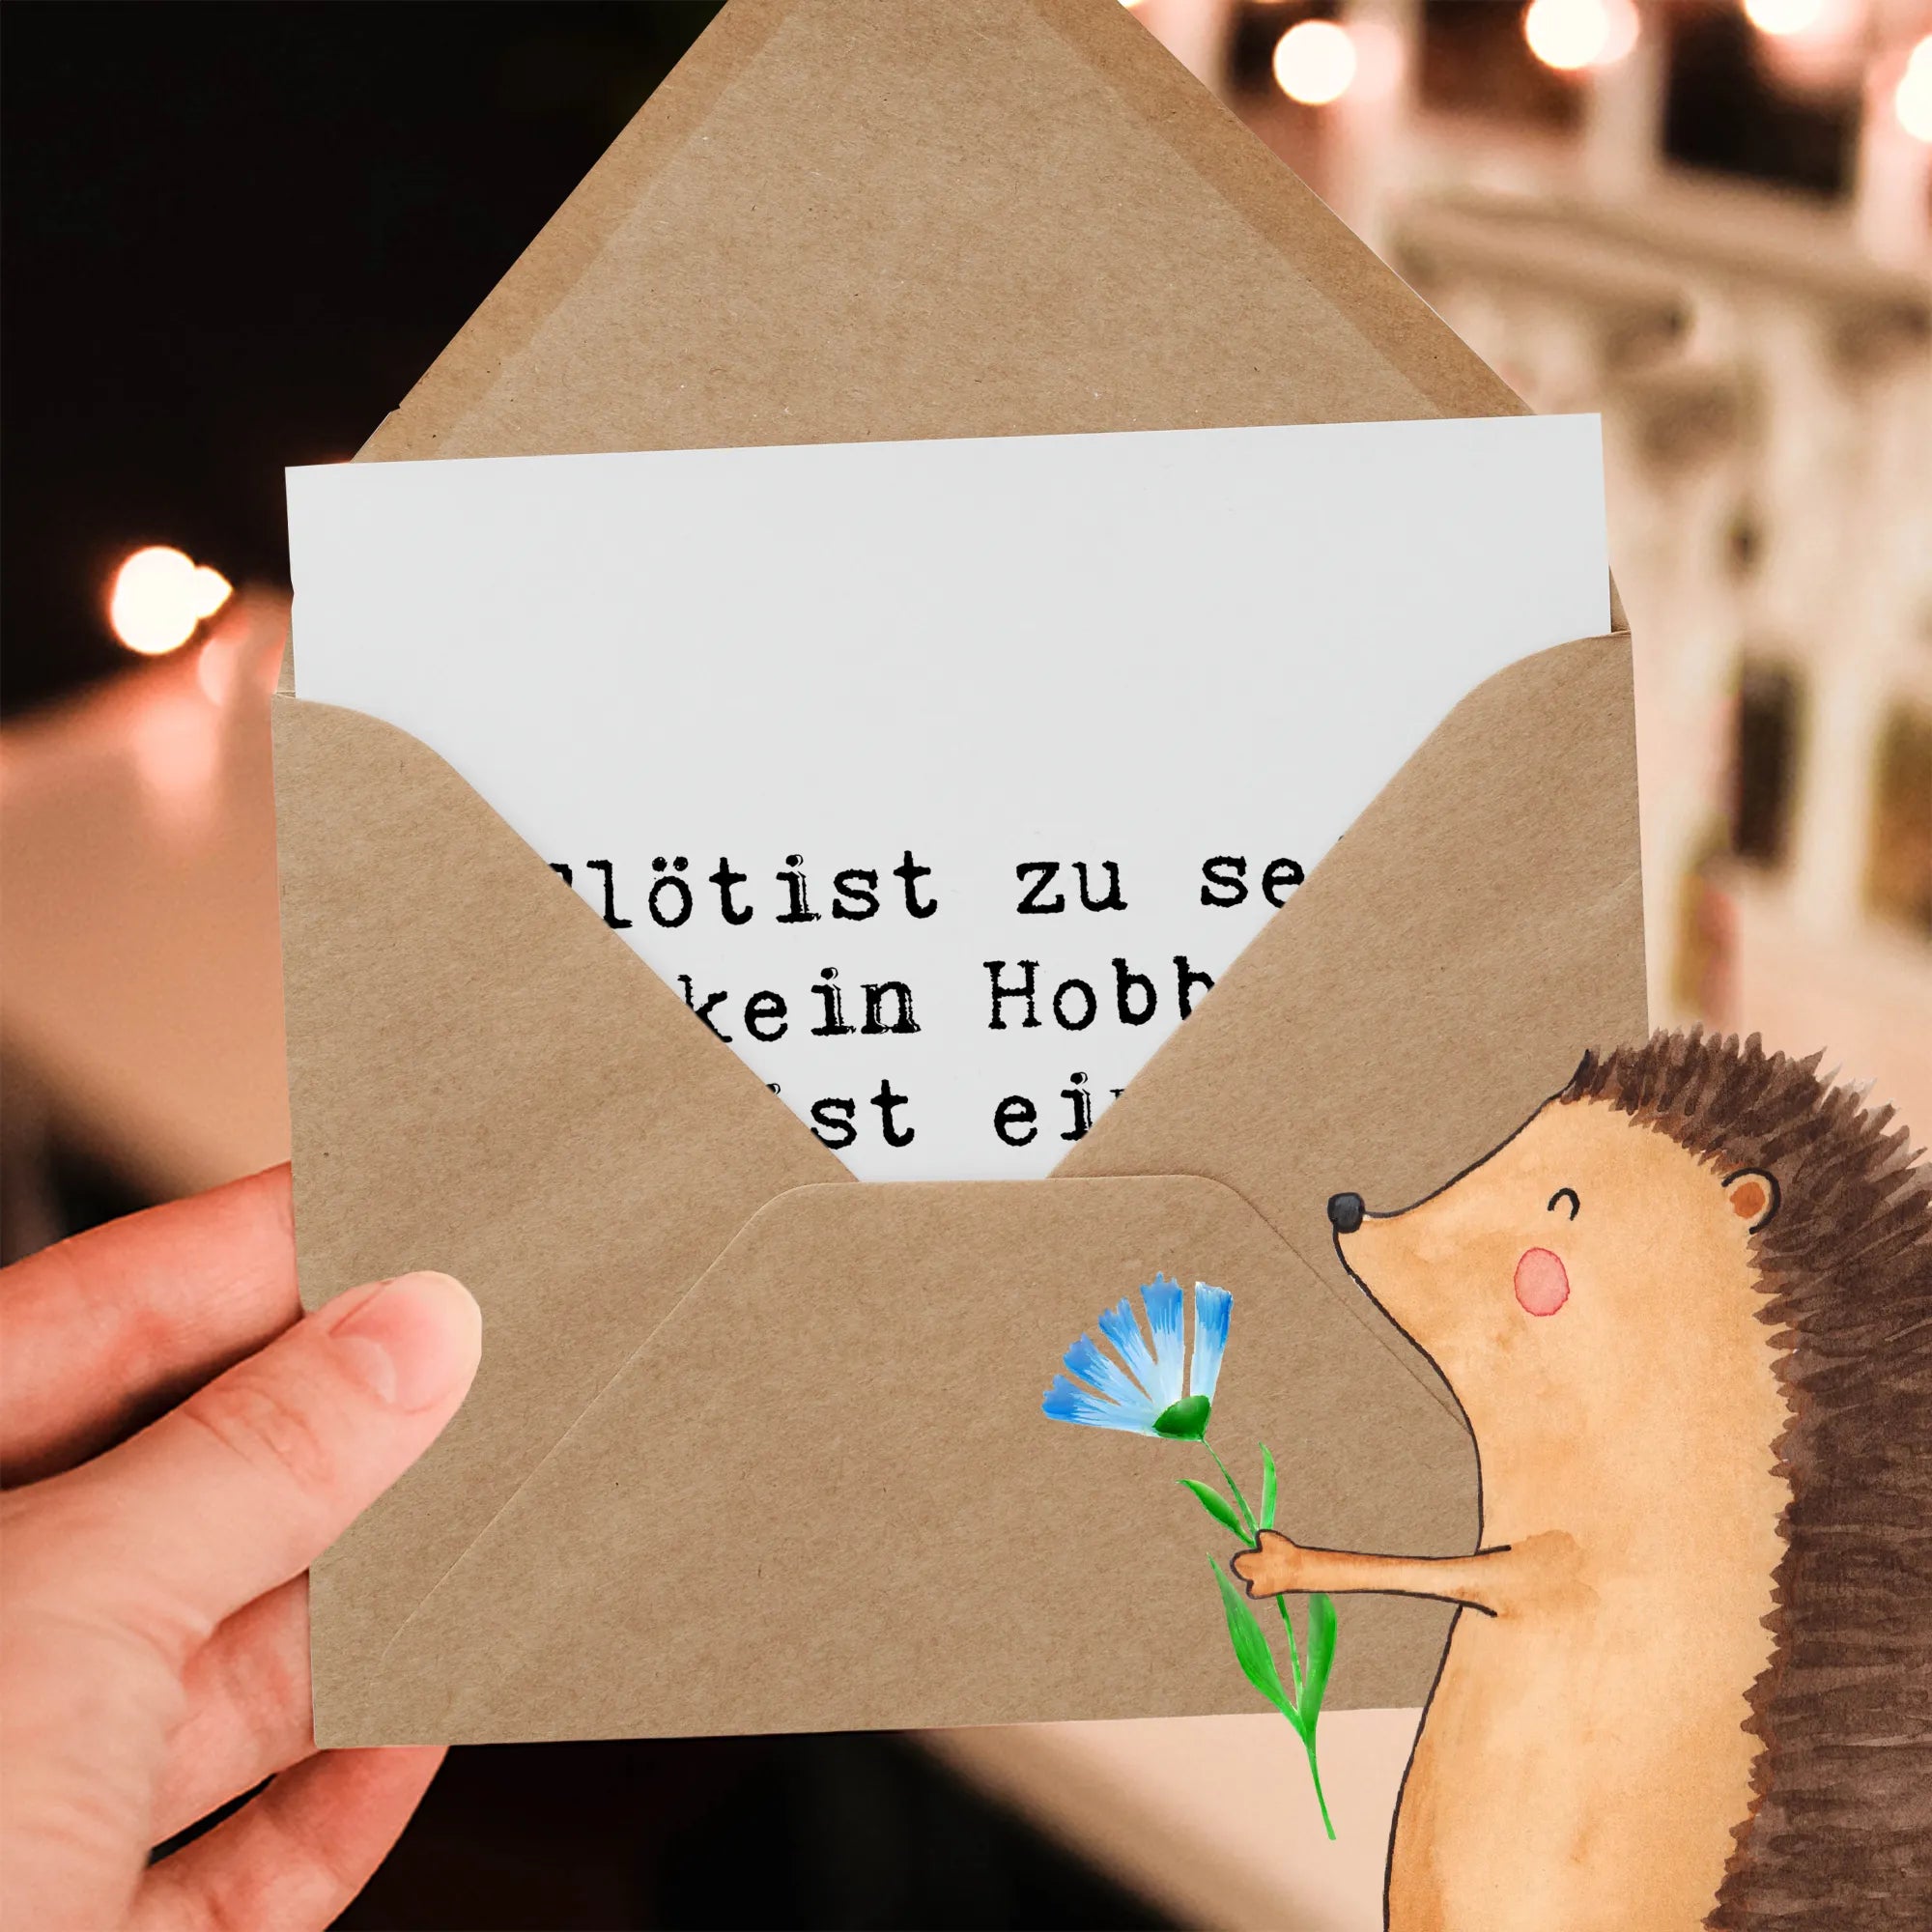 Flötist zu se
kein Hobb
ist ein